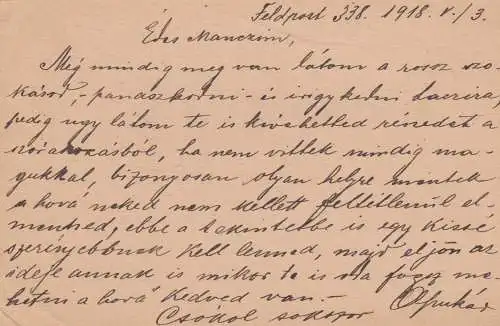 Feldpost 338. 1918. V./3.
Édes Manczim,
Még mindig meg van látom a rossz szo-
kásod, - panaszkodni - és irigykedni Laczira
pedig ugy látom te is kiveheted részedet a
szórakozásból, ha nem vittek mindig ma-
gukkal, bizonyosan olyan helyre mentek
a hová neked nem kellett feltétlenül el-
menned, ebbe a tekintetbe is egy kissé
szerényebbnek kell lenned, majd eljön az
ideje annak is mikor te is oda fogsz me-
hetni a hová kedved van. -
Csókol sokszor Apukád